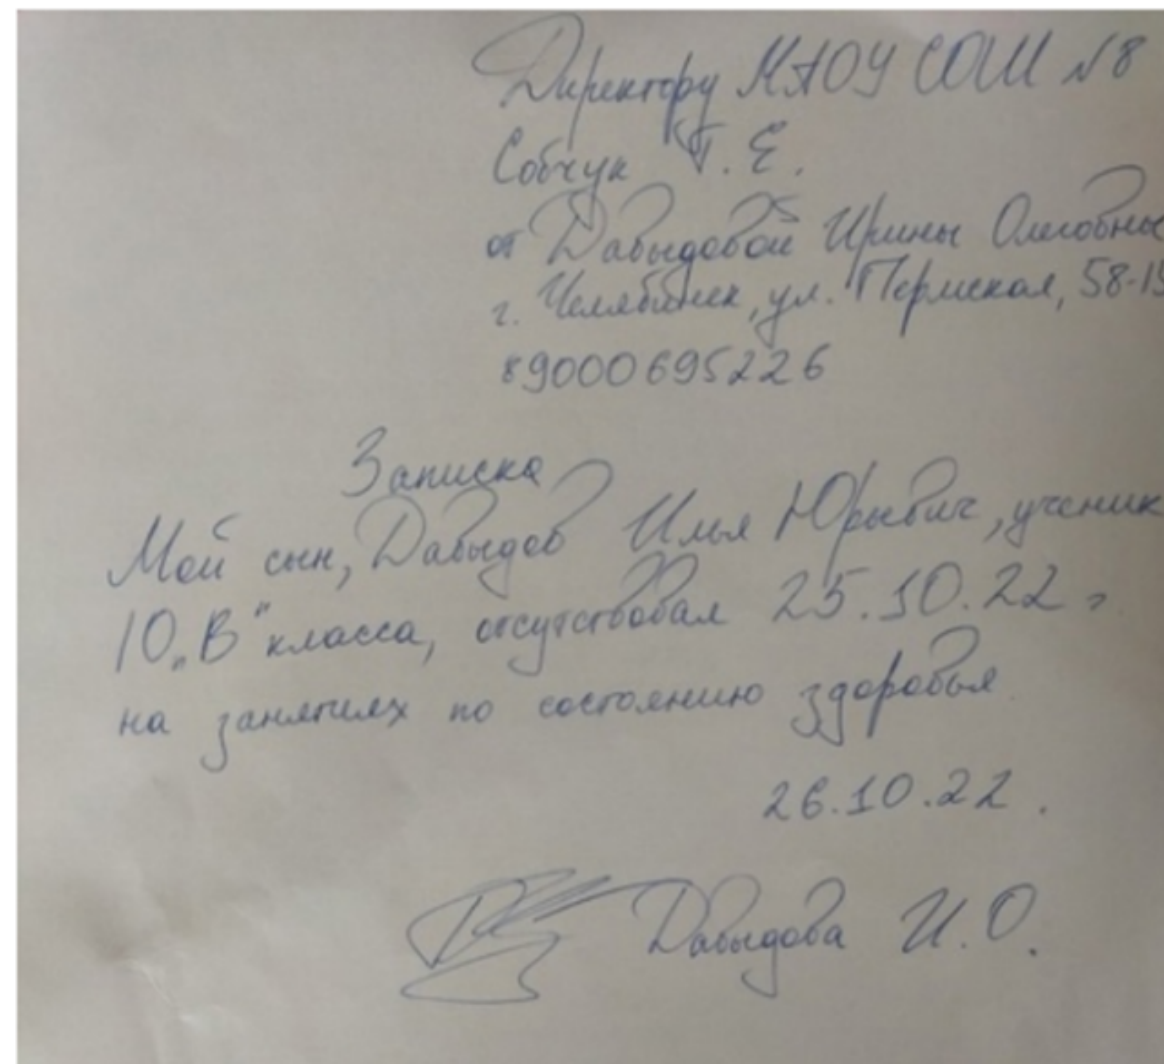 Директору МАОУ СОШ №8
Собчук Т. Е.
от Давыдовой Ирины Олеговны
г. Челябинск, ул. Пермская, 58-19
89000695226
Записка
Мой сын, Давыдов Илья Юрьевич, ученик
10 „В" класса, отсутствовал 25.10.22 г
на занятиях по состоянию здоровья
26.10.22.
Давыдова И.О.